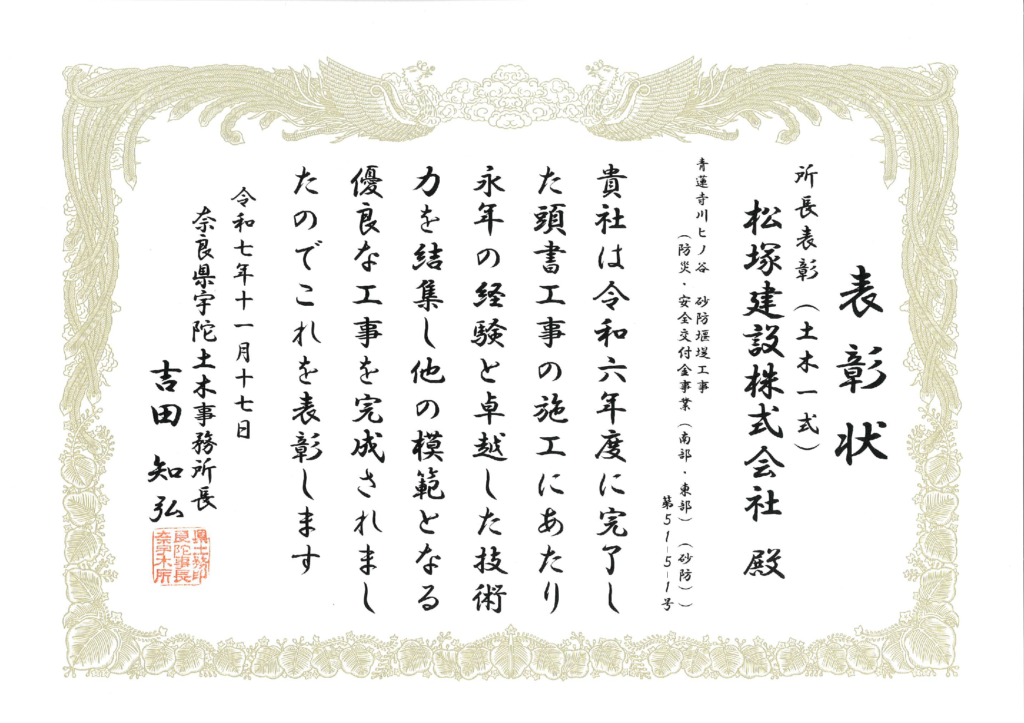 表彰状
所長表彰（土木一式）
松塚建設株式会社 殿
青蓮寺川ヒノ谷 砂防堰堤工事
（防災・安全交付金事業（南部・東部）（砂防））
第51-5-1号
貴社は令和六年度に完了し
た頭書工事の施工にあたり
永年の経験と卓越した技術
力を結集し他の模範となる
優良な工事を完成されまし
たのでこれを表彰します
令和七年十一月十七日
奈良県宇陀土木事務所長
吉田 知弘